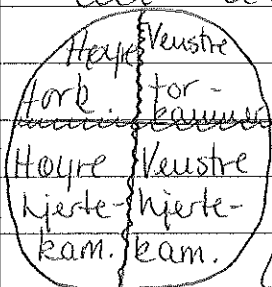 Høyre
fork.
Venstre
for-
kammer
Høyre
hjerte-
kam.
Venstre
hjerte-
kam.